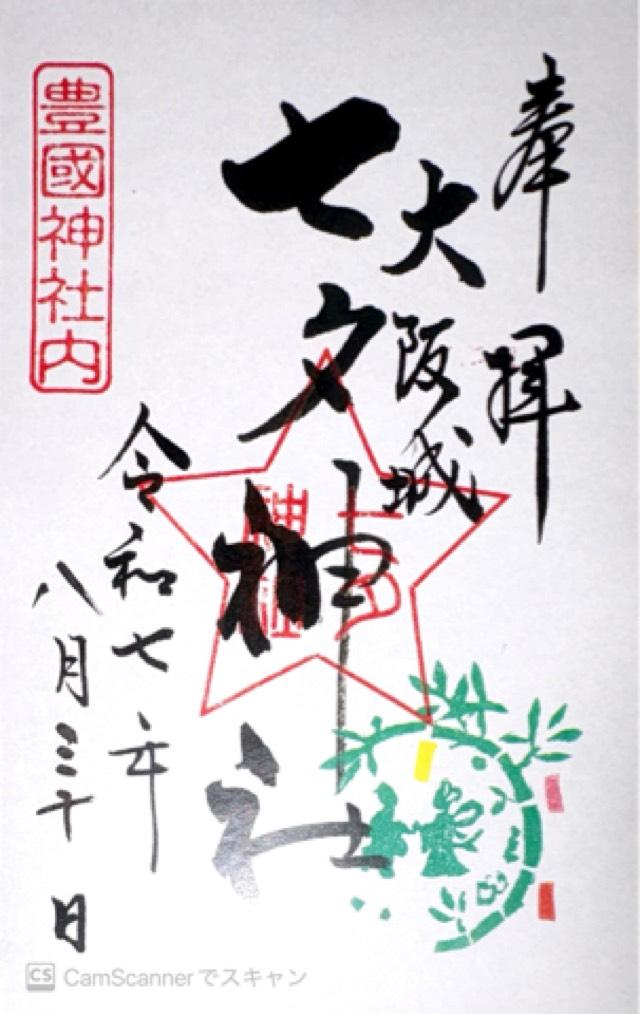 奉拝
大阪城
七夕神社
令和七年
八月三十日
豊國神社内
CamScannerでスキャン